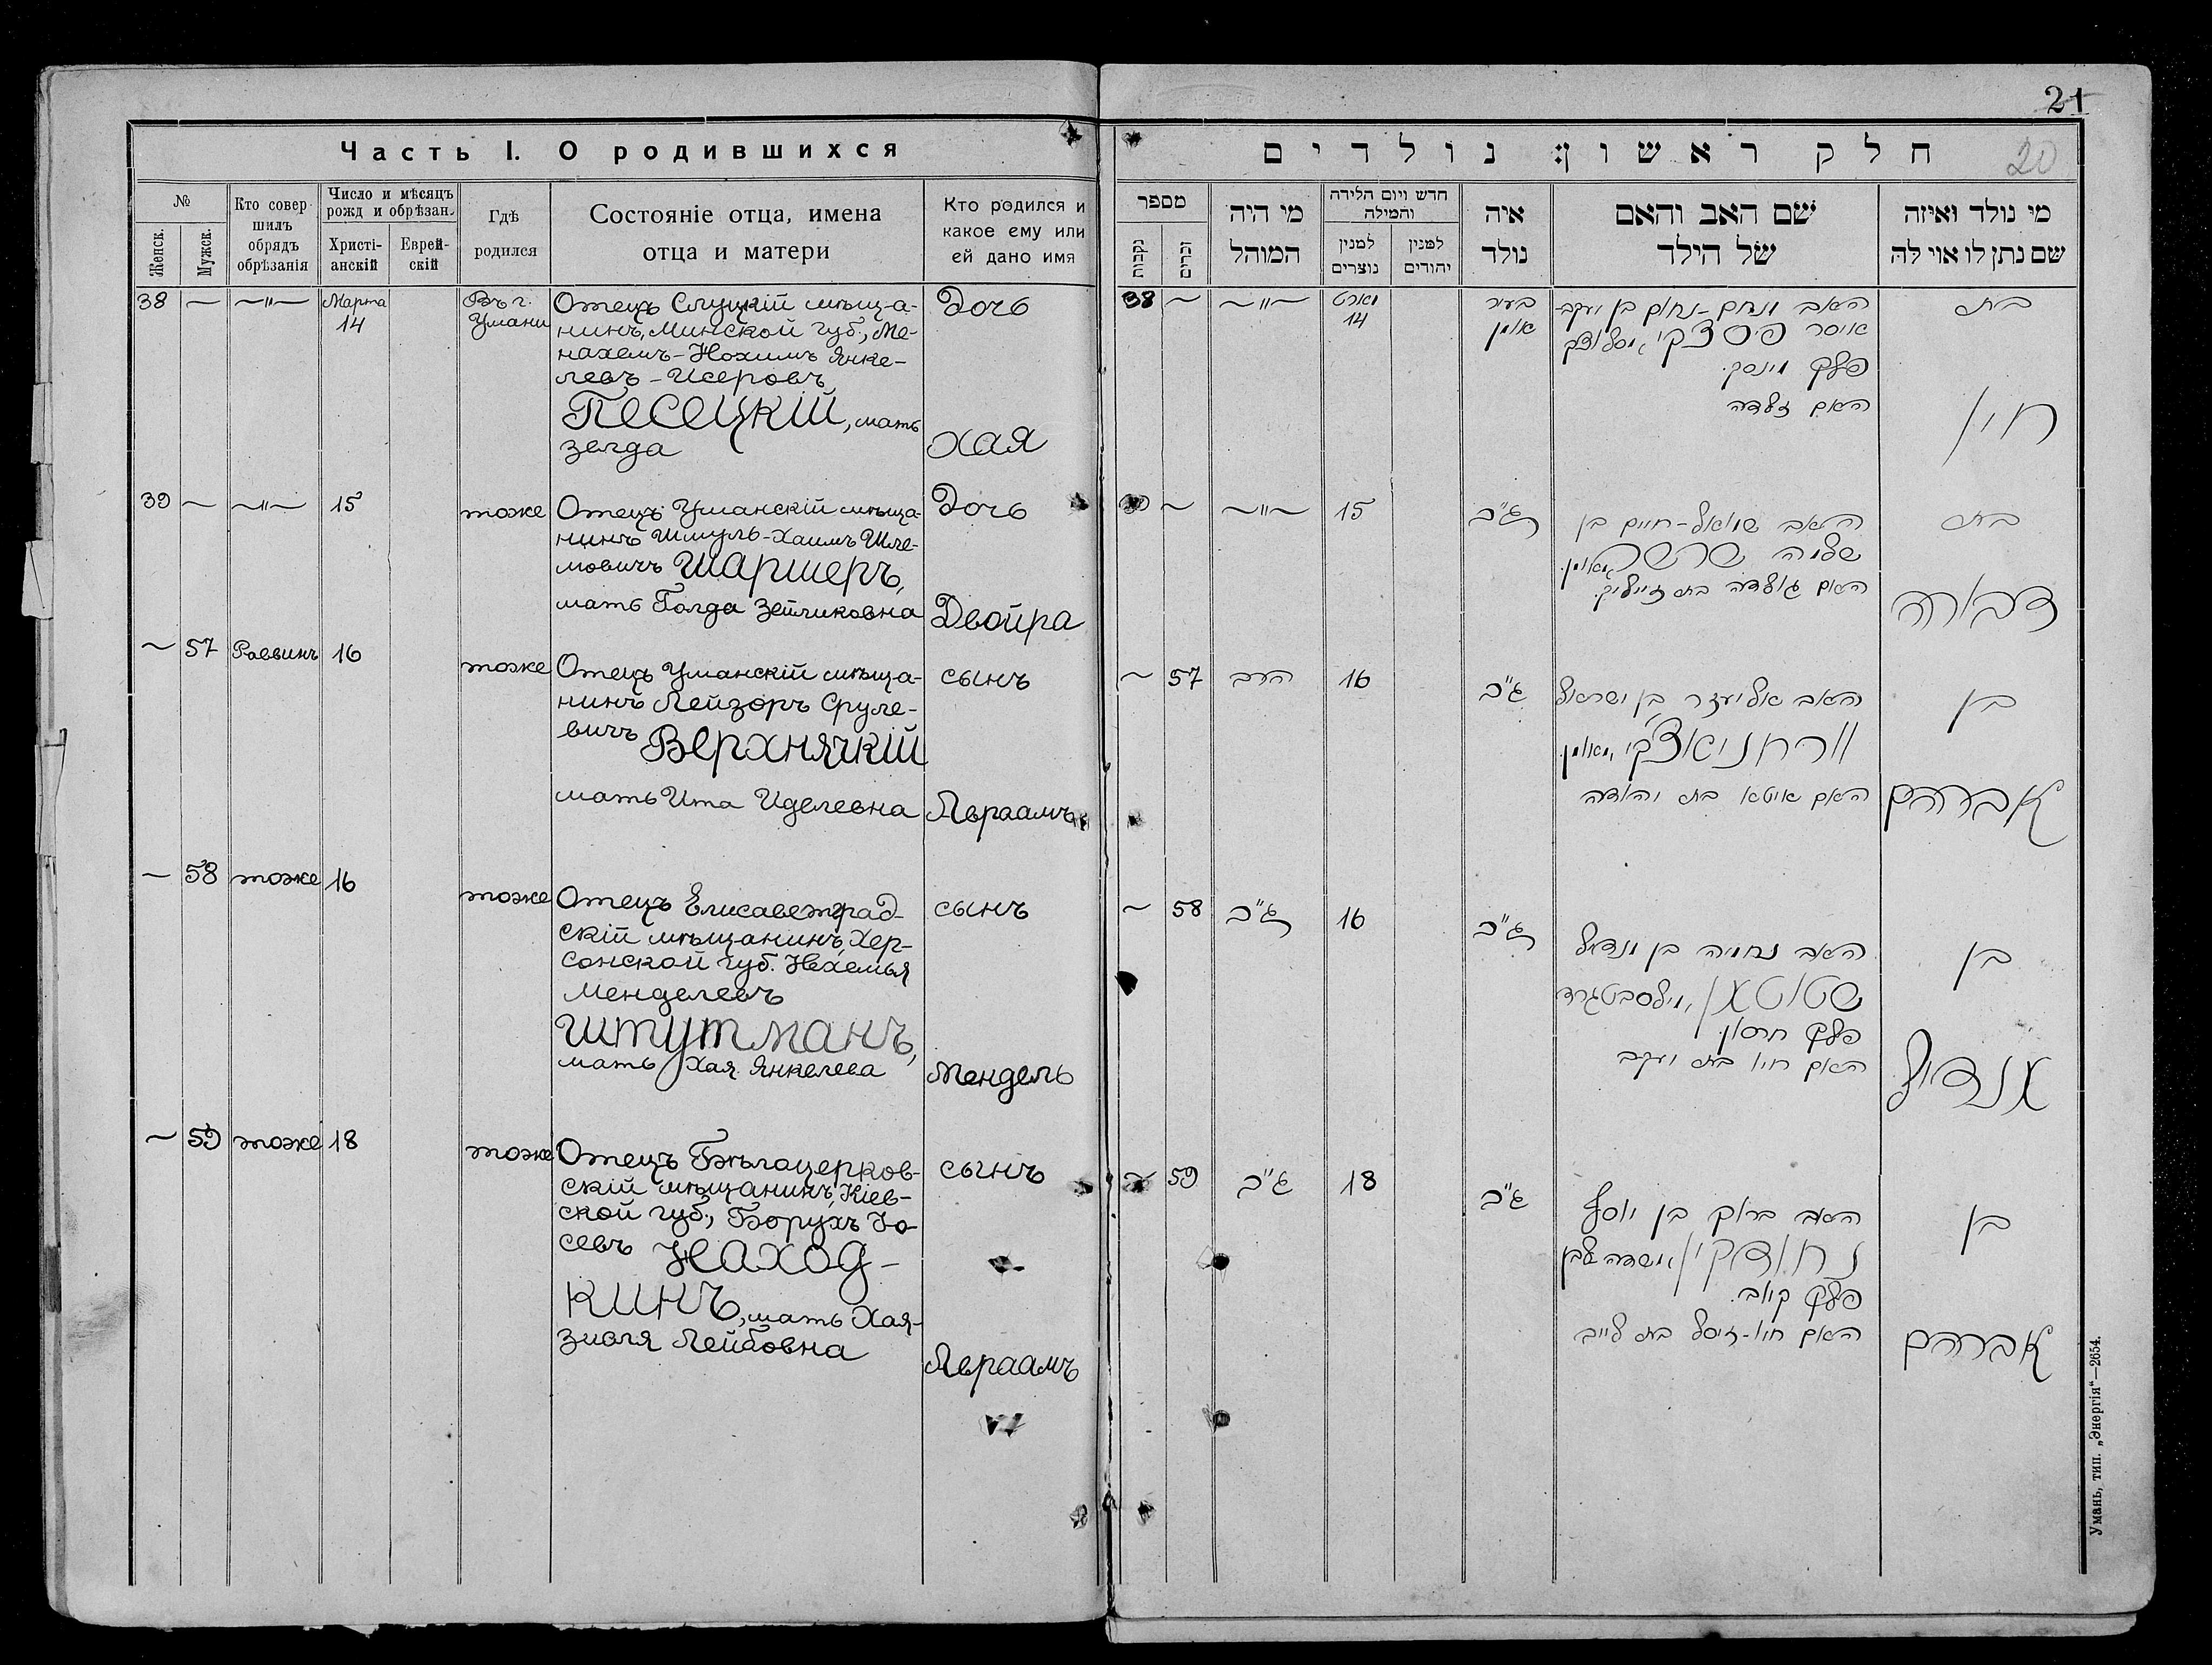 21
20
Часть I. О родившихся
№
Женск.
Мужск.
Кто совер-
шилъ
обрядъ
обрѣзанія
Число и мѣсяцъ
рожд и обрѣзан.
Христі-
анскій
Еврей-
скій
Гдѣ
родился
Состояніе отца, имена
отца и матери
Кто родился и
какое ему или
ей дано имя
38 — —"— Марта
14
Въ г.
Умани
Отецъ Слуцкій мѣща-
нинъ, Минской губ., Ме-
нахемъ-Нохимъ Янке-
левъ-Исеровъ
Песецкій, мать
Зелда
Дочь
Хая
39 — —"— 15 тоже
Отецъ Уманскій мѣща-
нинъ Шмуль-Хаимъ Шле-
мовичъ Шаршеръ,
мать Голда Зейликовна
Дочь
Двойра
— 57 Раввинъ 16 тоже
Отецъ Уманскій мѣща-
нинъ Лейзоръ Сруле-
вичъ Верхнячкій
мать Ита Иделевна
сынъ
Авраамъ
— 58 тоже 16 тоже
Отецъ Елисаветград-
скій мѣщанинъ, Хер-
сонской губ. Нехемья
Менделевъ
Штутманъ,
мать Хая Янкелева
сынъ
Мендель
— 59 тоже 18 тоже
Отецъ Бѣлоцерков-
скій мѣщанинъ, Кіев-
ской губ., Борухъ Іо-
севъ Наход-
кинъ, мать Хая-
Зисля Лейбовна
сынъ
Авраамъ
חלק ראשון: נולדים
מספר
נקבות
זכרים
מי היה
המוהל
חדש ויום הלידה
והמילה
למנין
נוצרים
למנין
יהודים
איה
נולד
שם האב והאם
של הילד
מי נולד ואיזה
שם נתן לו או לה
38 — —"— מארט
14
בעיר
אומן
האב מנחם-נחום בן יעקב-
איסר פיסצקי
פלך מינסק.
האם זלדה
בת
חיה
39 — —"— 15 ג"כ
האב שמואל-חיים בן
שלמה שרשר מאומן.
האם גולדה בת זייליק.
בת
דבורה
— 57 הרב 16 ג"כ
האב אליעזר בן ישראל
ורחניאצקי, מאומן.
האם איטא בת יהודה
בן
אברהם
— 58 ג"כ 16 ג"כ
האב נחמיה בן מנדיל
פלך חרסון.
האם חיה בת יעקב
בן
מנדיל
— 59 ג"כ 18 ג"כ
האב ברוך בן יוסף
נחודקין, משדה לבן
פלך קיוב.
האם חיה-זיסל בת לייב
בן
אברהם
Умань, тип. „Энергія“—2654.